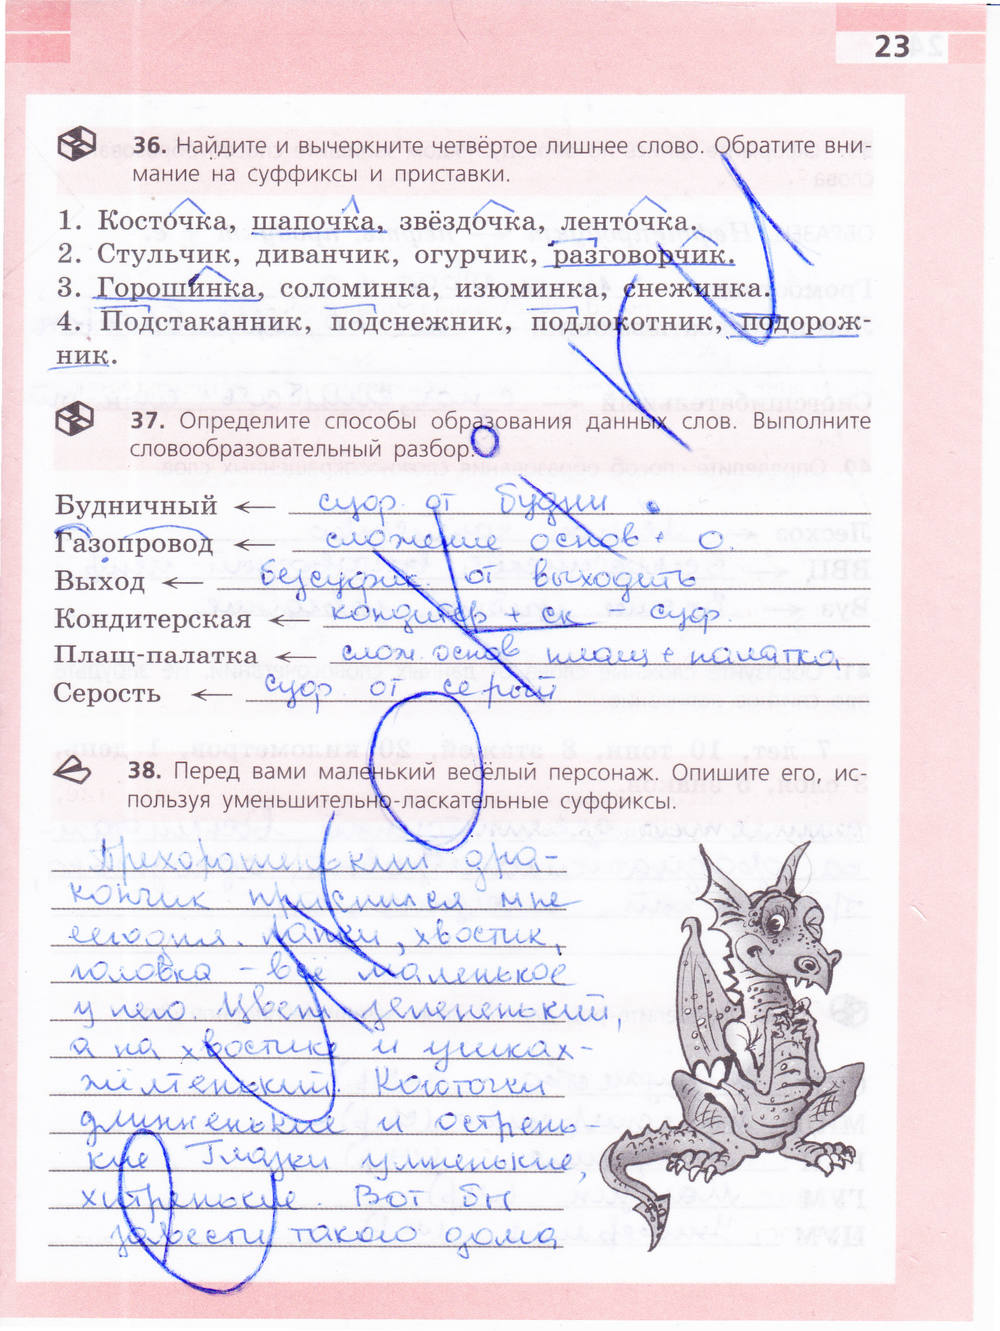 23
36. Найдите и вычеркните четвёртое лишнее слово. Обратите вни-
мание на суффиксы и приставки.
1. Косточка, шапочка, звёздочка, ленточка.
2. Стульчик, диванчик, огурчик, разговорчик.
3. Горошинка, соломинка, изюминка, снежинка.
4. Подстаканник, подснежник, подлокотник, подорож-
ник.
37. Определите способы образования данных слов. Выполните
словообразовательный разбор.
Будничный ← суф. от будни
Газопровод ← сложение основ + о.
Выход ← безсуфик. от выходить
Кондитерская ← кондитер + ск суф.
Плащ-палатка ← слож. основ плащ + палатка
Серость ← суф от серый
38. Перед вами маленький весёлый персонаж. Опишите его, ис-
пользуя уменьшительно-ласкательные суффиксы.
Прехорошенький дра-
кончик приснился мне
сегодня. Лапки, хвостик,
головка – всё маленькое
у него. Цвет зелененький,
а на хвостике и ушках-
жёлтенький Коготочки
длинненькие и острень-
кие Глазки умненькие,
хитренькие. Вот бы
завести такого дома